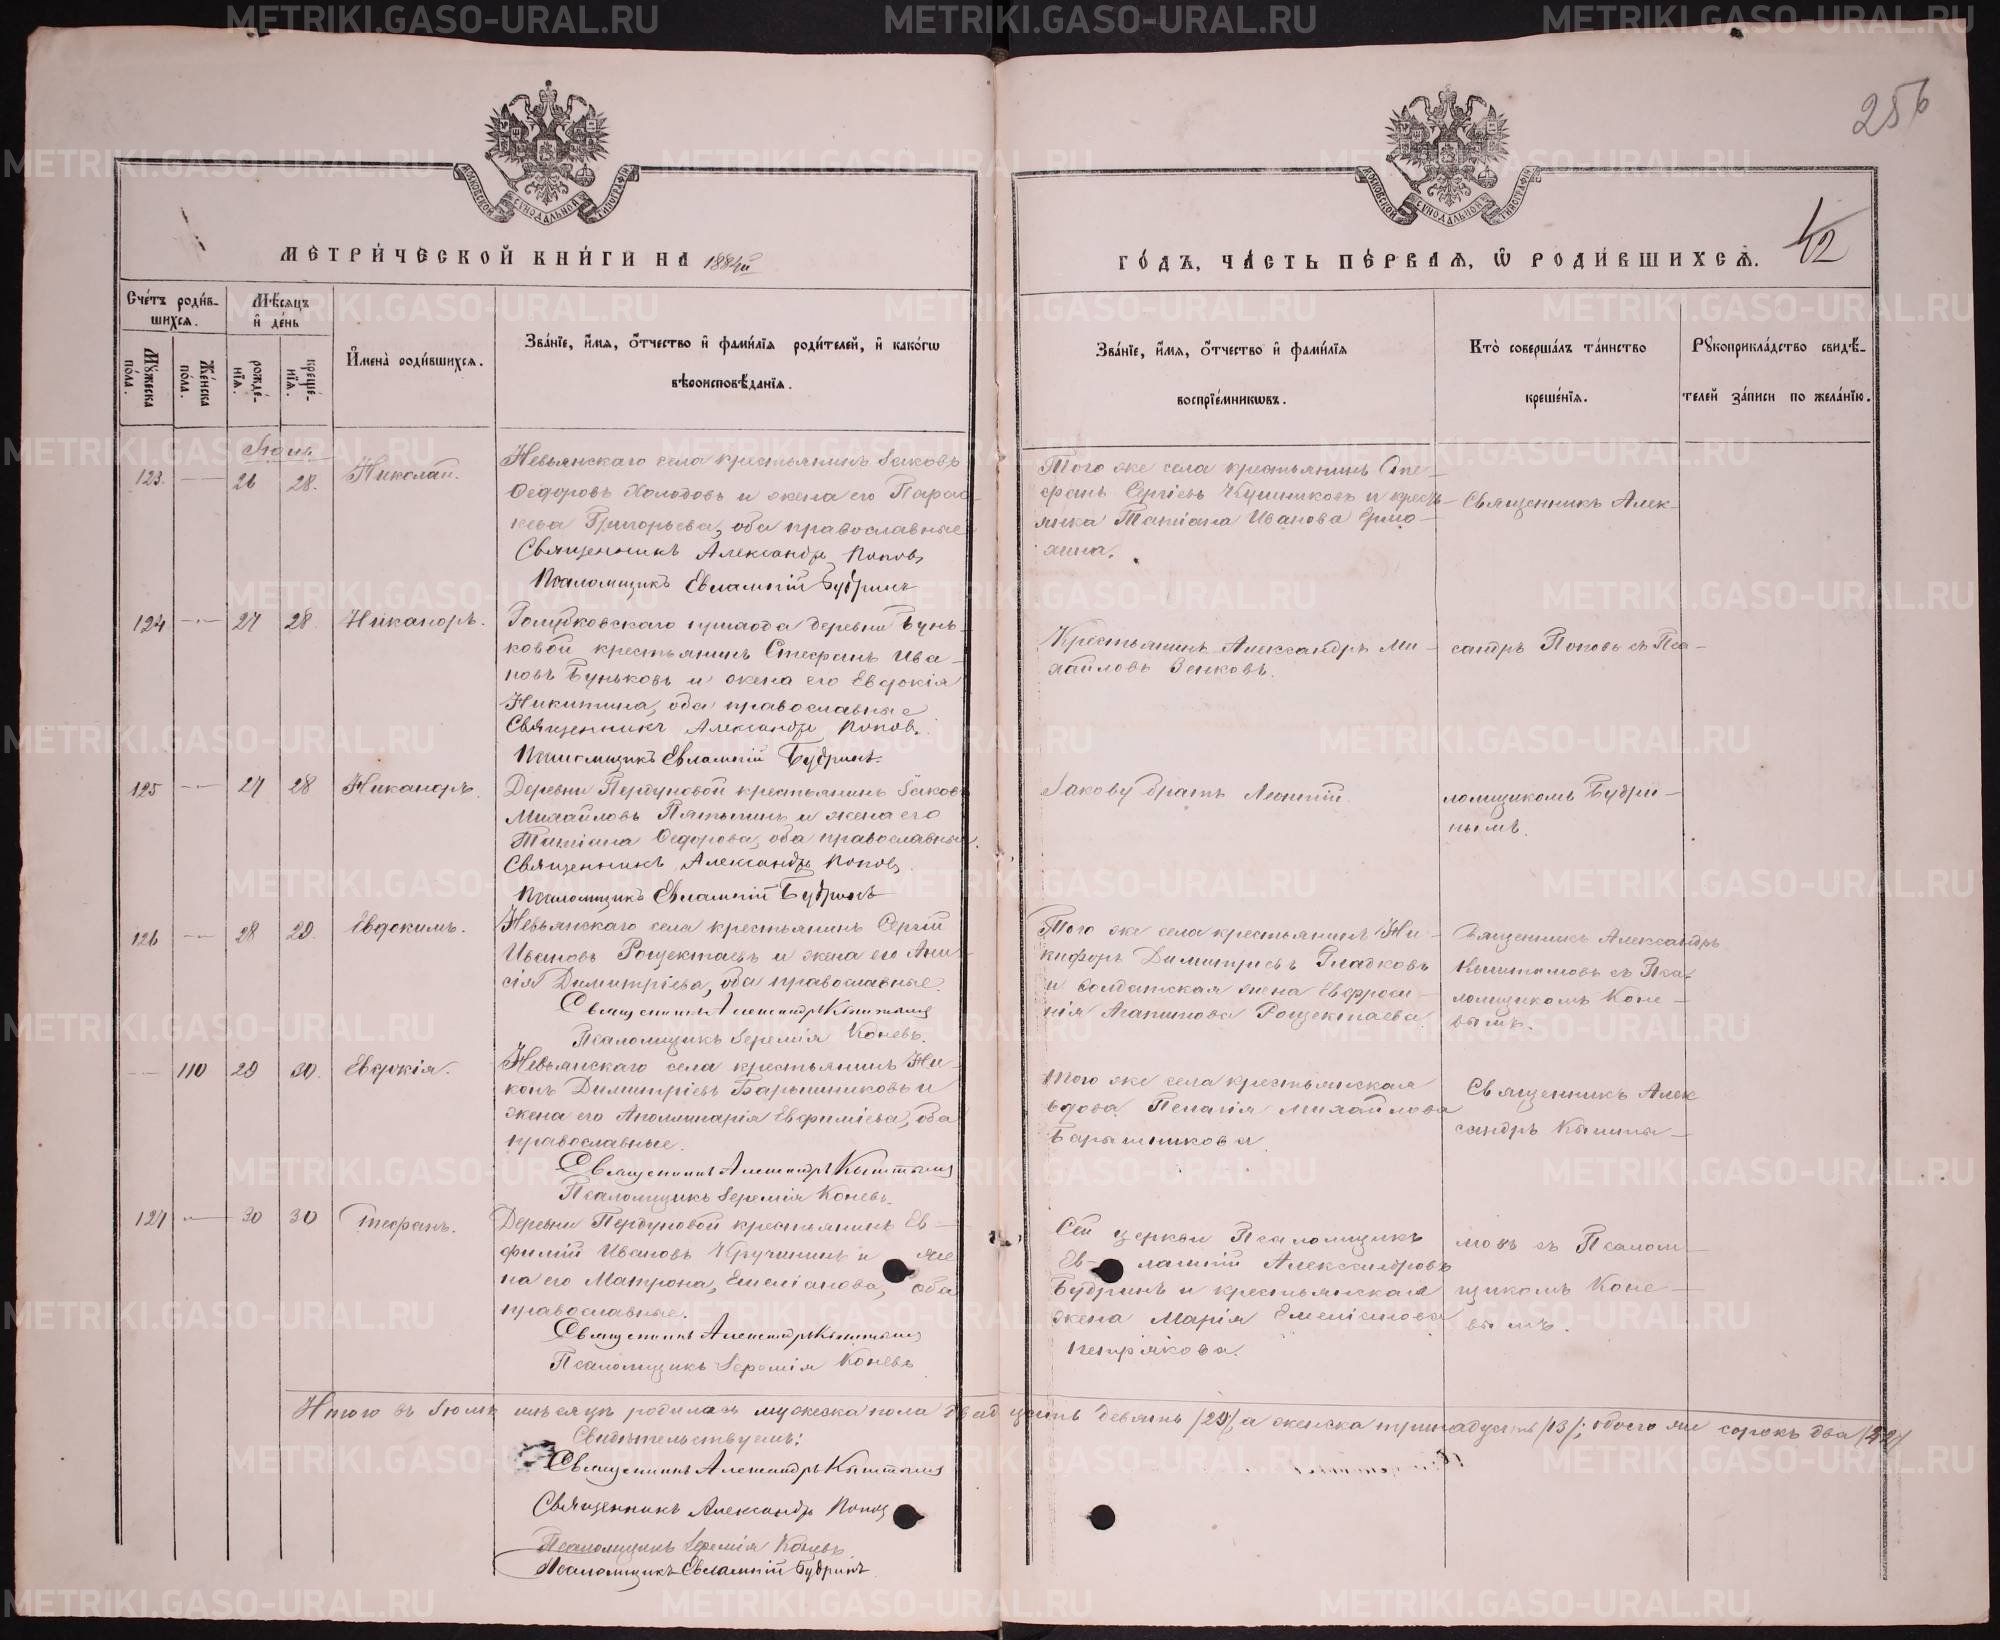 256
МЕТРИ́ЧЕСКОЙ КНИ́ГИ НА 1884й
ГО́ДЪ, ЧА́СТЬ ПЕ́РВАЯ, Ѡ РОДИ́ВШИХСѦ.
42
МОСКОВСКОЙ СѴНОДАЛЬНОЙ ТИПОГРАФІИ
МОСКОВСКОЙ СѴНОДАЛЬНОЙ ТИПОГРАФІИ
Сче́тъ роди́в-
шихсѧ.
Мѣ́сѧцъ
и҆ де́нь
Мꙋ́жеска
по́ла.
Же́нска
по́ла.
рожде́-
нїѧ.
креще́-
нїѧ.
И҆мена̀ роди́вшихсѧ.
Зва́нїе, и҆́мѧ, ѻ҆́тчество и҆ фами́лїѧ роди́телей, и҆ како́гѡ
вѣроисповѣ́данїѧ.
Зва́нїе, и҆́мѧ, ѻ҆́тчество и҆ фами́лїѧ
воспрїе́мникѡвъ.
Кто̀ соверша́лъ та́инство
креще́нїѧ.
Рꙋкоприкла́дство свидѣ́-
телей за́писи по жела́нїю.
Іюль
123. — 26 28. Николай.
Невьянскаго села крестьянинъ Іаковъ
Ѳедоровъ Холодовъ и жена его Парас-
кева Григорьева, оба православные
Священникъ Александръ Поповъ
Псаломщикъ Евлампій Будринъ
Того же села крестьянинъ Сте-
фанъ Сергіевъ Кушниковъ и кресть-
янка Татіана Иванова Ермо-
хина.
Священникъ Алек-
124 — 27 28. Никаноръ.
Голубковскаго прихода деревни Бунь-
ковой крестьянинъ Стефанъ Ива-
новъ Буньковъ и жена его Евдокія
Никитина, оба православные
Священникъ Александръ Поповъ.
Псаломщикъ Евлампій Будринъ.
Крестьянинъ Александръ Ми-
хайловъ Зенковъ.
сандръ Поповъ съ Пса-
125 — 27 28 Никаноръ.
Деревни Пердуновой крестьянинъ Іаковъ
Михайловъ Пятыгинъ и жена его
Татіана Ѳедорова, оба православные.
Священникъ Александръ Поповъ
Псаломщикъ Евлампій Будринъ
Іакову братъ Леонтій.
ломщикомъ Будри-
нымъ.
126 — 28 29. Евдокимъ.
Невьянскаго села крестьянинъ Сергій
Ивановъ Рощектаевъ и жена его Ани-
сія Димитріева, оба православные.
Священникъ Александръ Кыштымовъ
Псаломщикъ Іеремія Коневъ.
Того же села крестьянинъ Ни-
кифоръ Димитріевъ Гладковъ
и солдатская жена Евфроси-
нія Агапитова Рощектаева
Священникъ Александръ
Кыштымовъ съ Пса-
ломщикомъ Коне-
вымъ.
— 110 29 30. Евдокія.
Невьянскаго села крестьянинъ Ни-
конъ Димитріевъ Барышниковъ и
жена его Аполлинарія Евфиміева, оба
православные.
Священникъ Александръ Кыштымовъ
Псаломщикъ Іеремія Коневъ.
Того же села крестьянская
вдова Пелагія Михайлова
Барышникова
Священникъ Алек
сандръ Кышты-
127 — 30 30 Стефанъ.
Деревни Пердуновой крестьянинъ Ев-
фимій Ивановъ Кручининъ и же
на его Матрона, Емеліанова, оба
православные.
Священникъ Александръ Кыштымовъ
Псаломщикъ Іеремія Коневъ
Сей церкви Псаломщикъ
Ев- лампій Александровъ
Будринъ и крестьянская
жена Марія Емеліанова
мовъ съ Псалом-
щикомъ Коне-
вымъ.
Итого въ Іюлѣ мѣсяцѣ родилось мужеска пола двадцать девять /29/, а женска тринадцать /13/; обоего же сорокъ два /42/
Свидѣтельствуемъ:
Священникъ Александръ Кыштымовъ
Священникъ Александръ Поповъ
Псаломщикъ Іеремія Коневъ
Псаломщикъ Евлампій Будринъ
METRIKI.GASO-URAL.RU